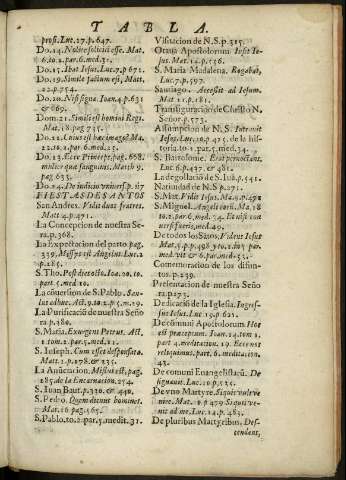 TABLA.
prosi. Luc. 27. p. 647.
Do. 14. Nolite soliciti esse. Mat.
6. to. 2. par. 6. med. 31.
Do. 15. Ibat Iesus. Luc. 7. p. 671.
Do. 19. Simile factum est, Matt.
22. p. 754.
Do. 20. Nisi signa. Ioan. 4. p. 631
& 669.
Dom. 21. Simile est homini Regi.
Mat. 18. pag. 735.
Do. 22. Cuius est haec imago? Ma.
22. to. 2. par. 6. med. 25.
Do. 23. Ecce Princeps. pag. 668.
mulier quae sanguinis. Match. 9.
pag. 633.
Do. 24. De iudicio vniuers. p. 117
FIESTAS DE SANTOS
San Andres. Vidit duos fratres.
Matt. 4. p. 471.
La Concepcion de nuestra Se-
ra. p. 368.
La Expectacion del parto pag.
339. Missus est Angelus. Luc. 1.
p. 285.
S. Tho. Post dies octo. Ioa. 20. to.
part. 5. med. 10.
La conuersion de S. Pablo. Sau-
lus adhuc. Act. 9. to. 2. p. 5. m. 19.
La Purificació de nuestra Seño
ra p. 380.
S. Matia. Exurgens Petrus. Act.
1. tom. 2. par. 5. med. 21.
S. Ioseph. Cum esset desponsata.
Matt. 1. p. 278. & 235.
La Anúciacion. Missus est, pag.
285. de la Encarnacion. 274.
S. Iuan Baut. p. 310. & 440.
S. Pedro. Quem dicunt homines.
Mat. 16. pag. 565.
S. Pablo. to. 2. par. 5. medit. 31.
Visitacion de N. S. p. 315.
Otaua Apostolorum. Iussit Ie-
sus. Mat. 14. p. 536.
S. Maria Madalena. Rogabat,
Luc. 7. p. 597.
Santiago. Accessit ad Iesum.
Mat. 21. p. 181.
Transfiguració de Christo N.
Señor. p. 573.
Assumpcion de N. S. Intrauit
Iesus. Luc. 10. p. 425. de la histo-
ria. to. 2. par. 5. med. 34.
S. Bartolome. Erat pernoctans.
Luc. 6. p. 437. & 481.
La degollació de S. Iuá. p. 541.
Natiuidad de N. S. p. 271.
S. Mat. Vidit Iesus. Ma. 9. p. 478
S. Miguel. Angeli eorũ. Ma. 18
to. 2. par. 6. med. 34. Et nisi con
uersi fueris. med. 40.
De todos los Sátos. Videns Iesus
Mat. 5. p. p. 498. y to. 2. en 5. par.
med. vlt. & 6. par. med. 53.
Comemoracion de los difun-
tos. p. 239.
Presentacion de nuestra Seño
ra p. 273.
Dedicació de la Iglesia. Ingres-
sus Iesus. Luc. 19. p. 621.
De comúni Apostolorum Hoc
est praeceptum. Ioan. 14. tom. 2
part. 4. meditacion. 19. Ecce nos
reliquimus. part. 6. meditacion
43.
De comuni Euangelistarũ. De
signauit. Luc. 10. p. 525.
De vno Martyre. Si quis vult ve
nire. Mat. 2. p. 479. Si quis ve-
nit ad me. Luc. 14. p. 483.
De pluribus Martyribus. Des-
cendens,